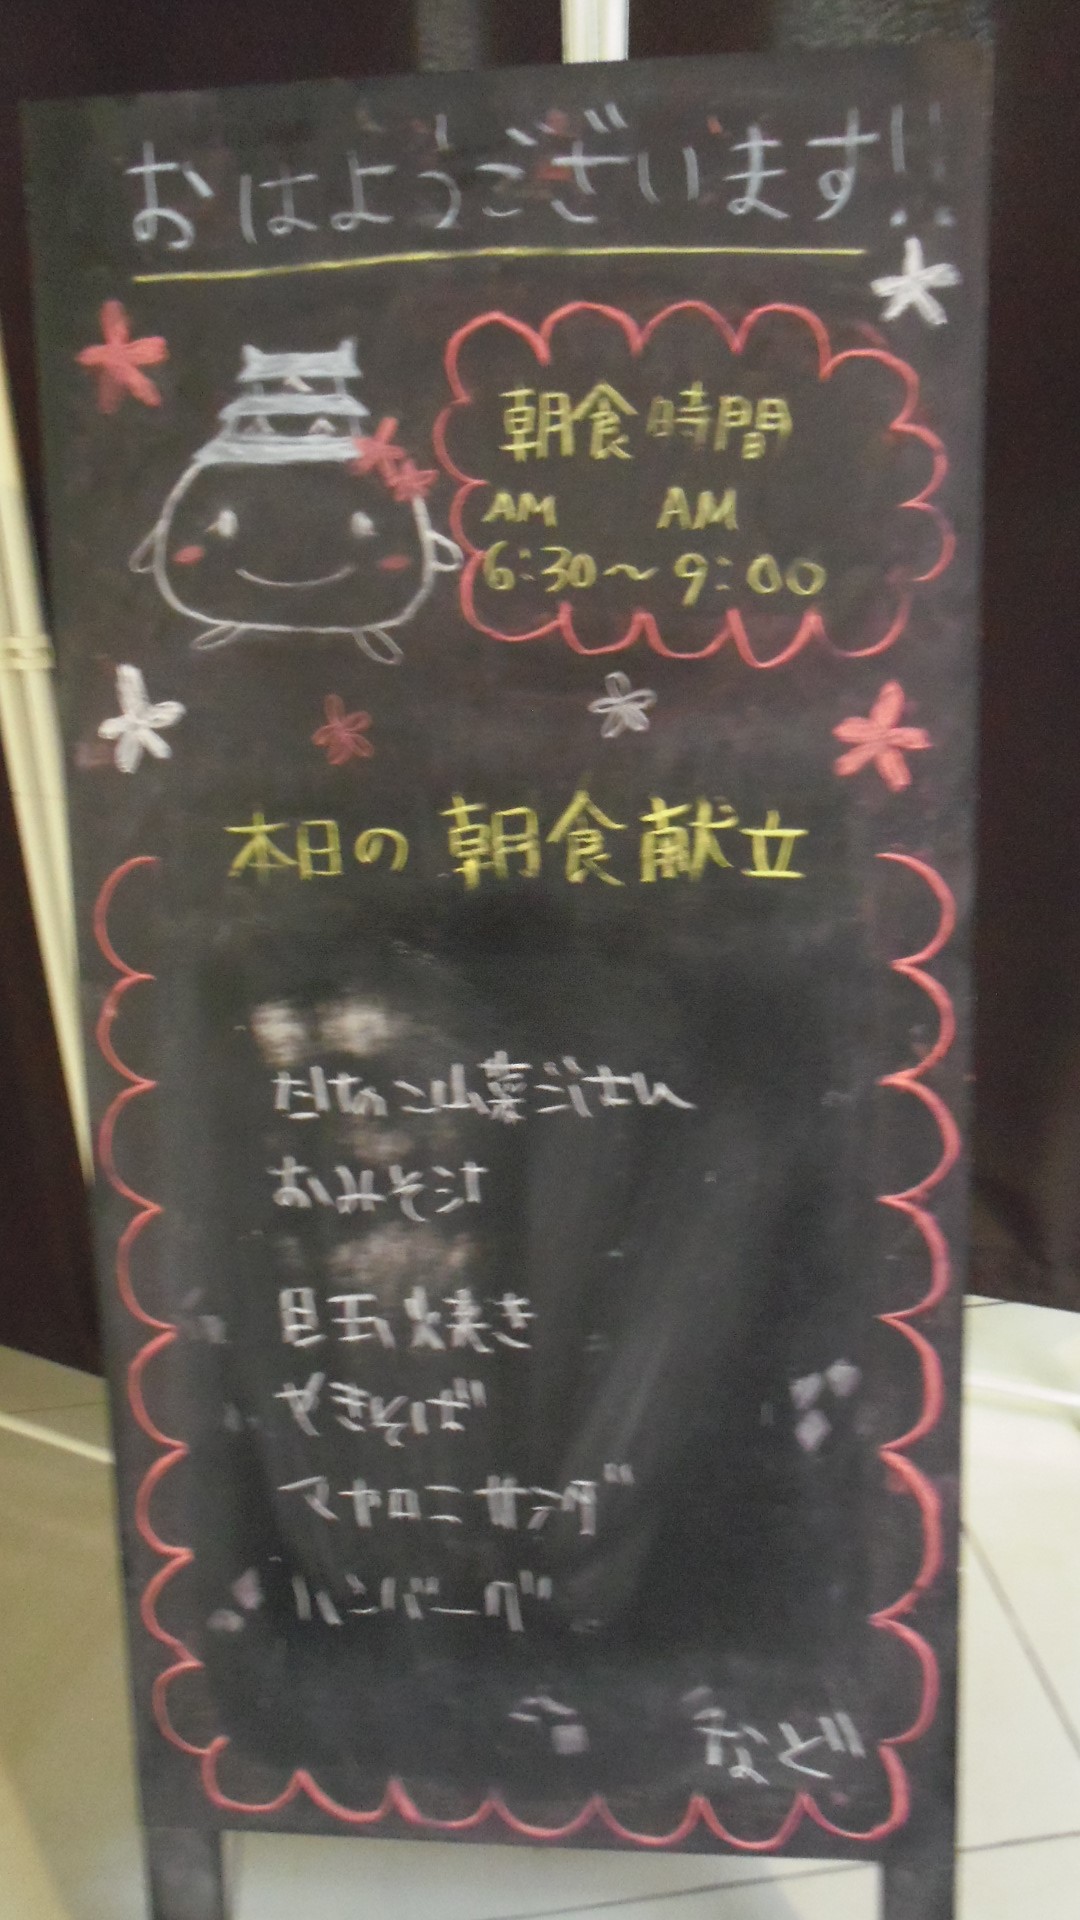 おはようございます!!
朝食時間
AM AM
6:30～9:00
本日の朝食献立
たけのこ山菜ごはん
おみそ汁
目玉焼き
やきそば
マカロニサラダ
ハンバーグ
など